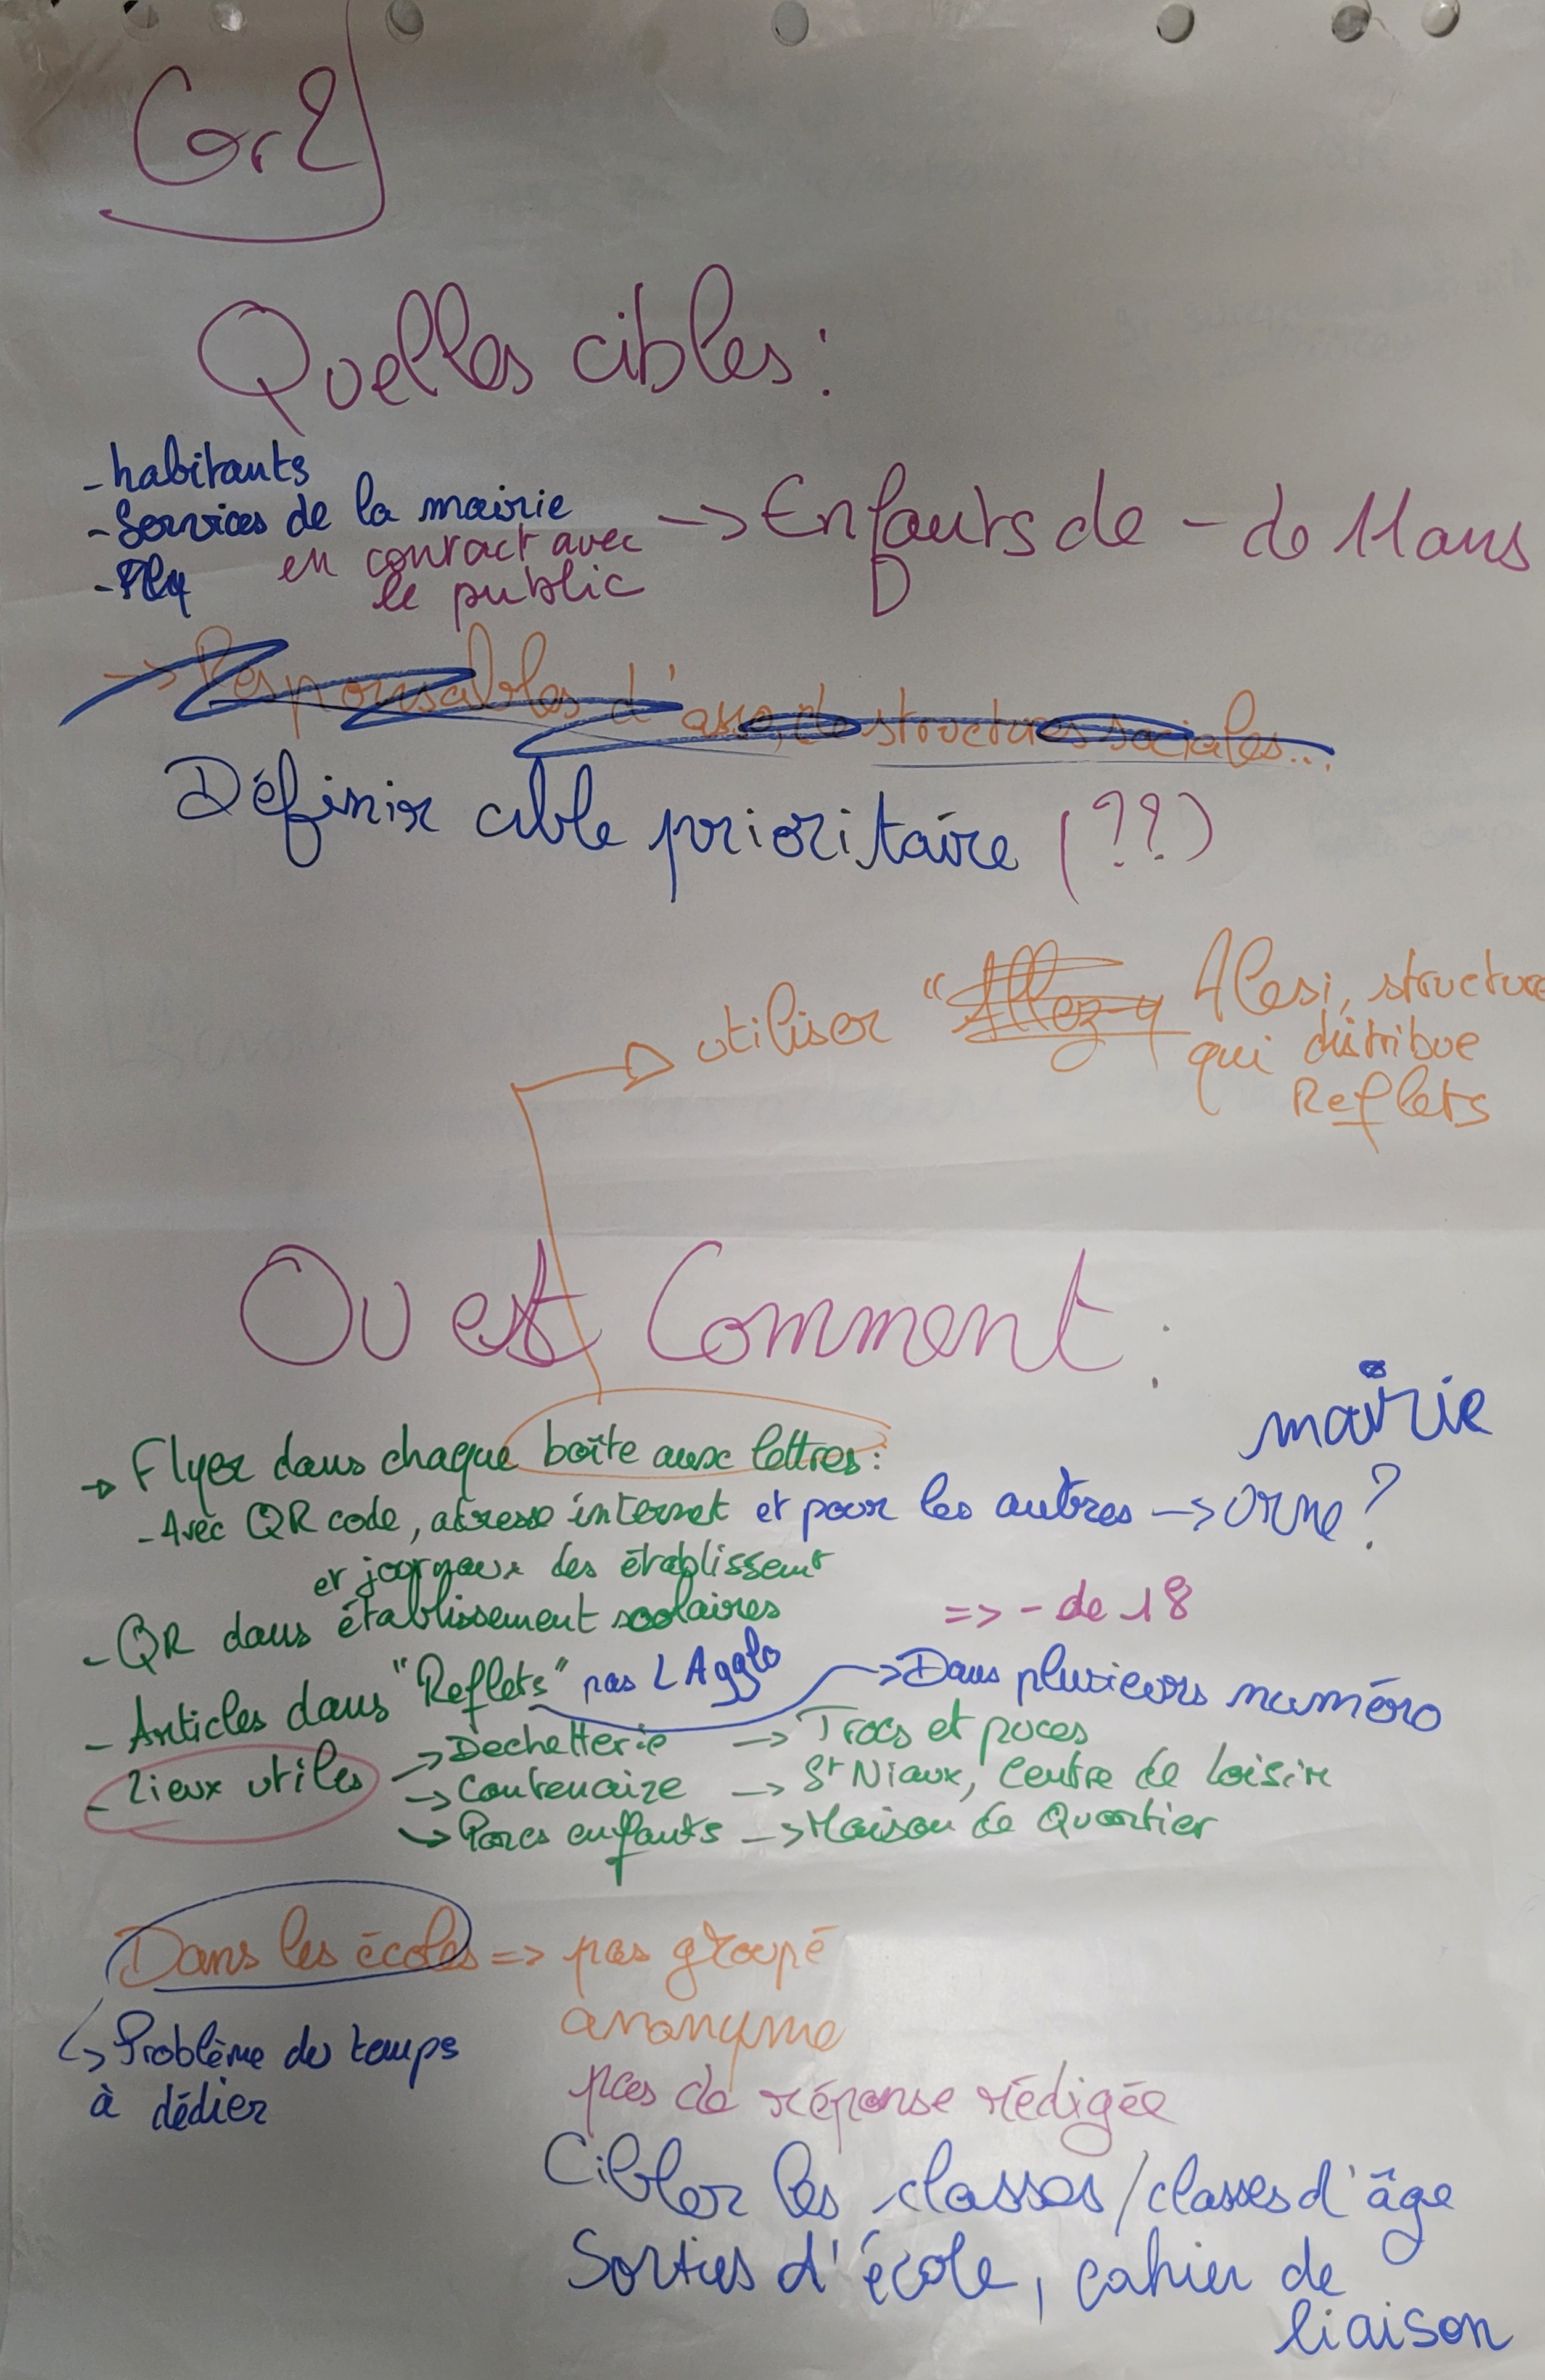 Gr2
Quelles cibles :
- habitants
- Services de la mairie
en contact avec
le public
-> Enfants de - de 11 ans
-> Responsables d'asso, de structures sociales...
Définir cible prioritaire (??)
utiliser "Allez-y Alesi, structure
qui distribue
Reflets
Ou et Comment :
-> Flyer dans chaque boîte aux lettres :
- Avec QR code, adresse internet et pour les autres -> orne ?
mairie
et journaux des établissemt
- QR dans établissement scolaires
=> - de 18
- Articles dans "Reflets" pas L'Agglo -> Dans plusieurs numéro
- Lieux utiles -> Dechetterie -> Trocs et puces
-> Contenaire -> St Niaux, Centre de Loisir
-> Parcs enfants -> Maison de Quartier
Dans les écoles => pas groupé
anonyme
-> Problème du temps
à dédier
pas de réponse rédigée
Cibler les classes/classes d'âge
Sorties d'école, cahier de
liaison